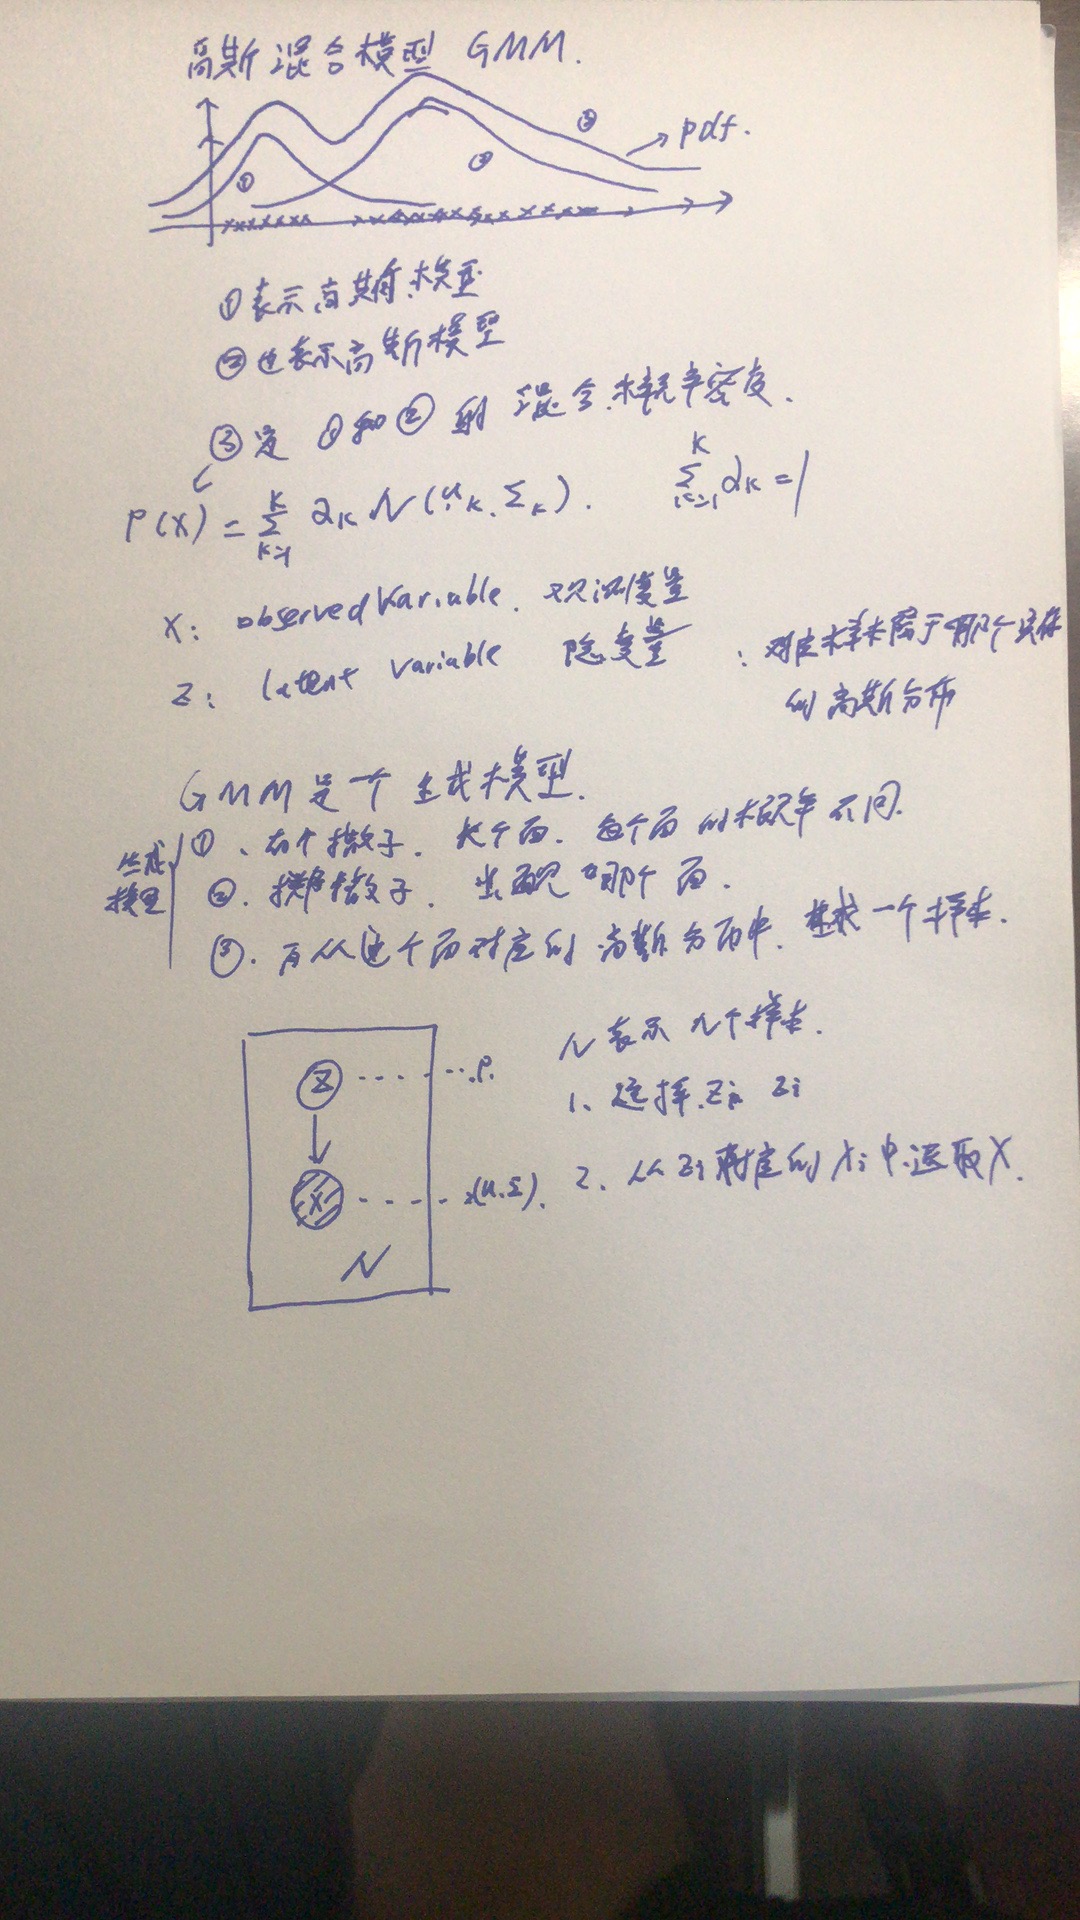 高斯混合模型 GMM.
③
pdf.
②
①
①表示高斯模型
②也表示高斯模型
③是①和②的混合概率密度.
P(X) = ∑_{k=1}^{K} α_k N(μ_k, Σ_k).  ∑_{k=1}^{K} α_k = 1
X: observed Variable. 观测变量
Z: latent variable 隐变量 : 对应样本属于哪个
的高斯分布
GMM是一个生成模型.
生成模型
①、有个撒子. K个面. 每个面的概率不同.
②. 掷撒子. 出现哪个面.
③. 再从这个面对应的高斯分布中. 一个样本.
Z ······ P.
X ······ (μ.Σ).
N
N表示N个样本.
1、选择 Zi
2、从Zi对应的Xi中选取X.